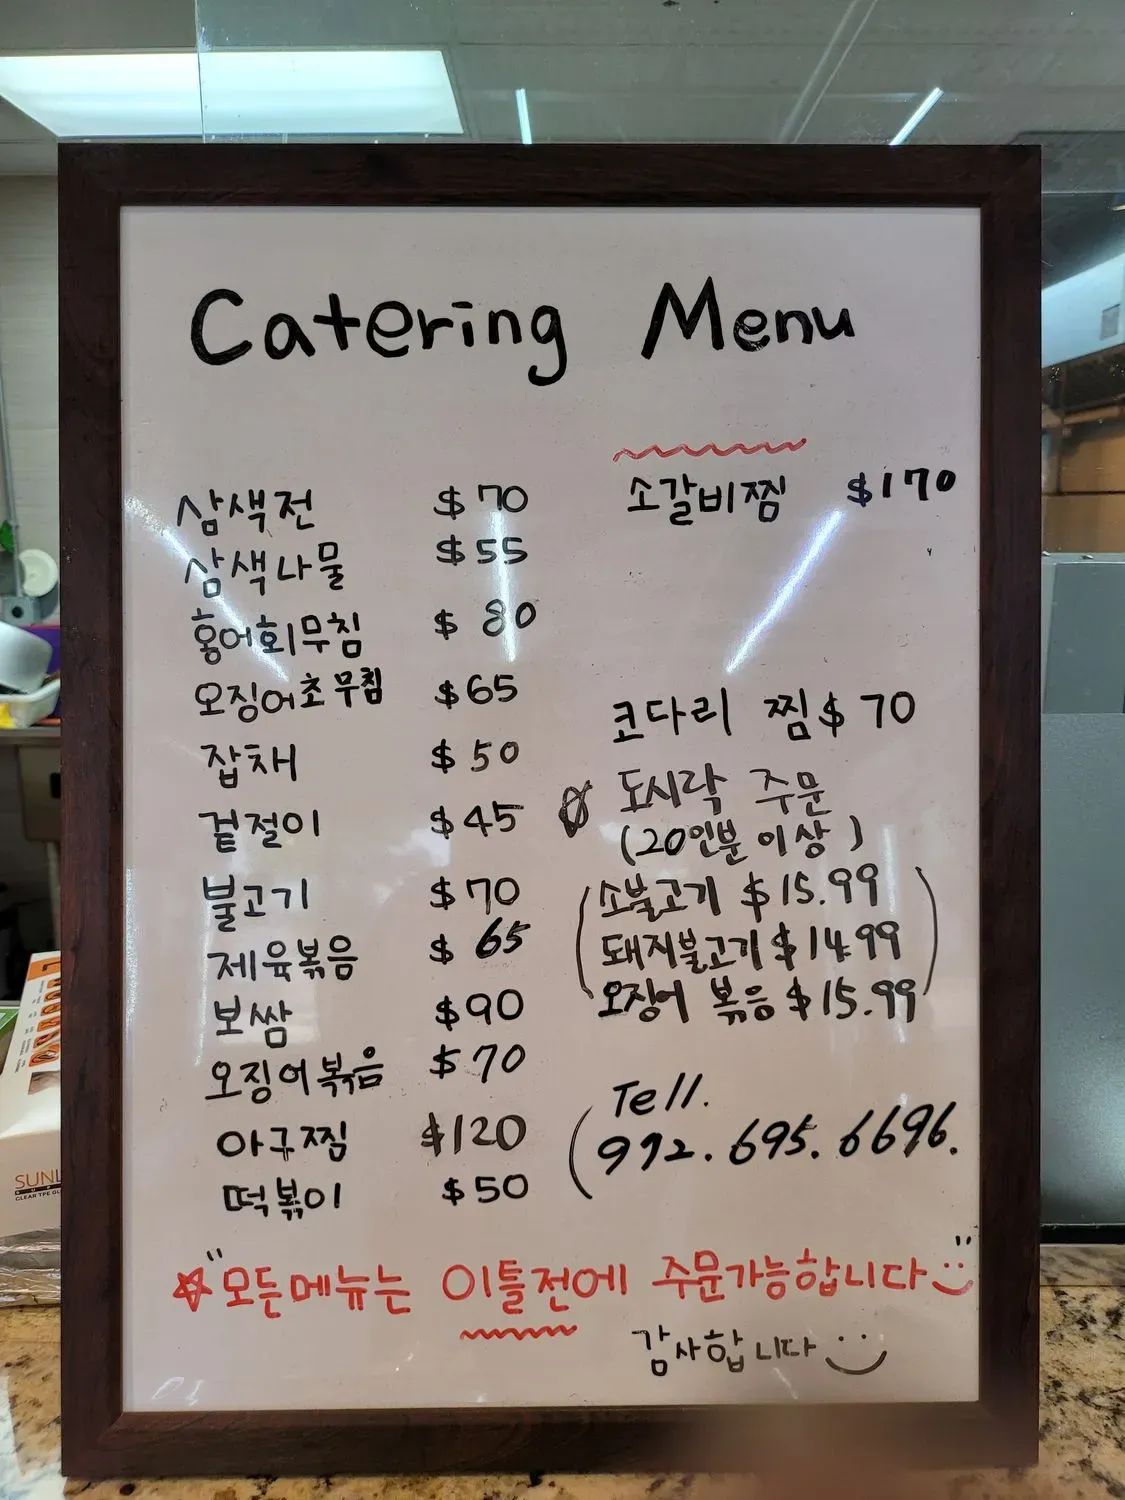 Catering Menu
삼색전 $70
삼색나물 $55
홍어회무침 $80
오징어초무침 $65
잡채 $50
겉절이 $45
불고기 $70
제육볶음 $65
보쌈 $90
오징어볶음 $70
아구찜 $120
떡볶이 $50
소갈비찜 $170
코다리 찜 $70
도시락 주문
(20인분 이상)
소불고기 $15.99
돼지불고기 $14.99
오징어 볶음 $15.99
Tell.
972.695.6696.
"모든메뉴는 이틀전에 주문가능합니다"
감사합니다
SUNL
CLEAR TPE GL